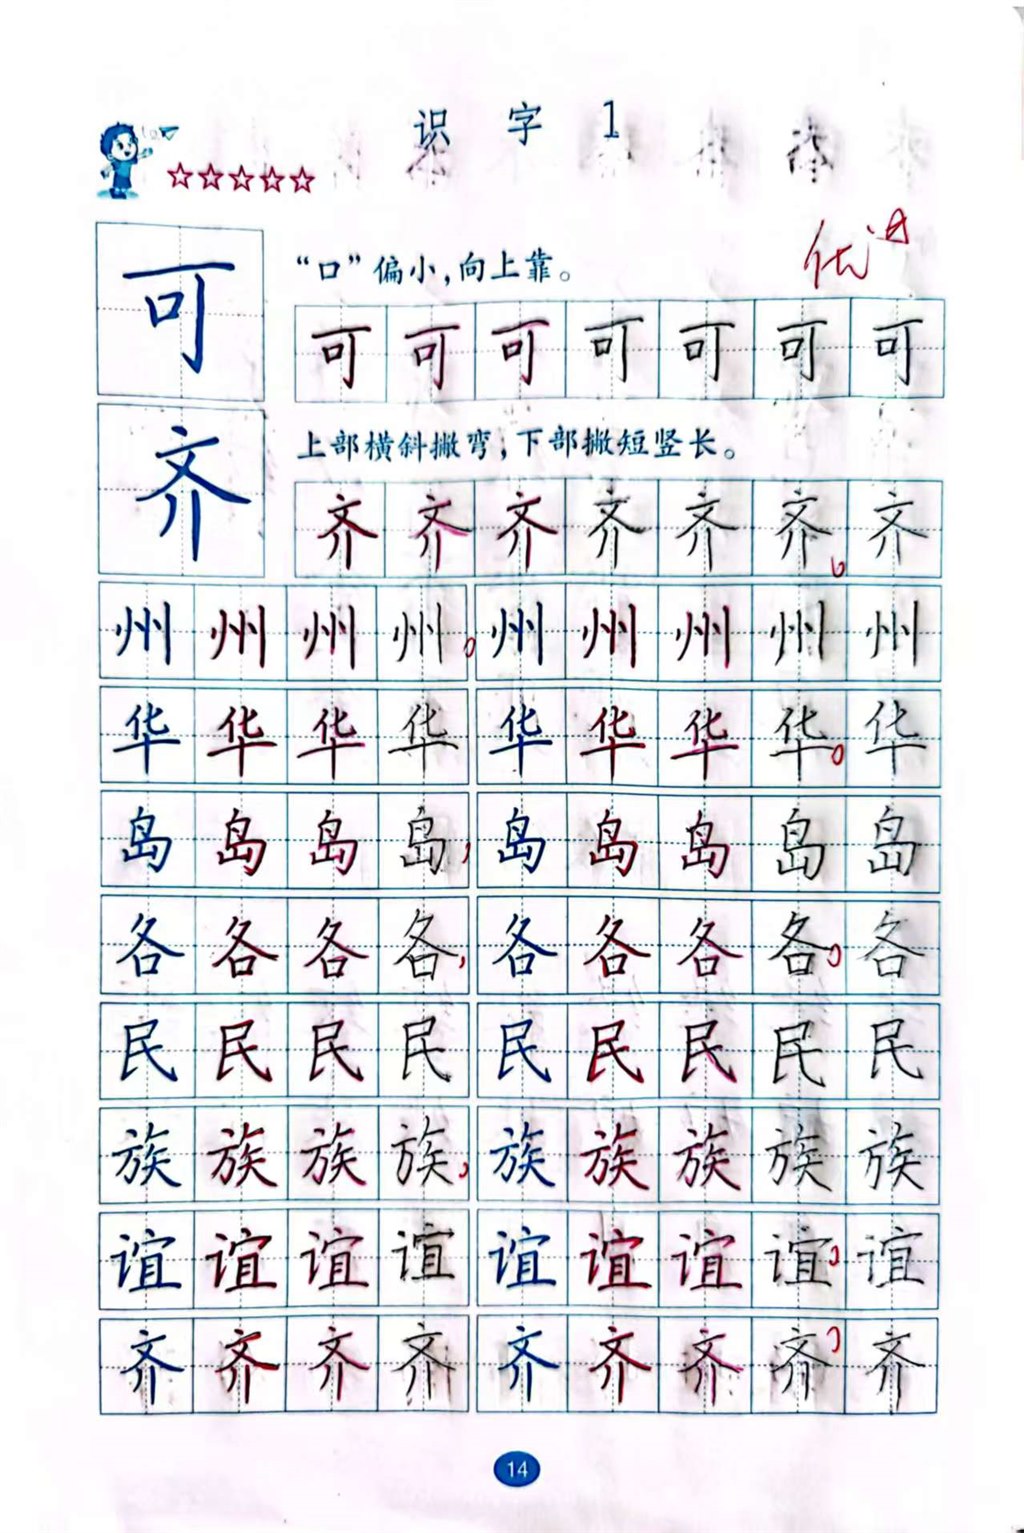 识 字 1
优
可
“口”偏小,向上靠。
可 可 可 可 可 可 可
齐
上部横斜撇弯,下部撇短竖长。
齐 齐 齐 齐 齐 齐 齐
州 州 州 州 州 州 州 州 州
华 华 华 华 华 华 华 华 华
岛 岛 岛 岛 岛 岛 岛 岛 岛
各 各 各 各 各 各 各 各 各
民 民 民 民 民 民 民 民 民
族 族 族 族 族 族 族 族 族
谊 谊 谊 谊 谊 谊 谊 谊 谊
齐 齐 齐 齐 齐 齐 齐 齐 齐
14